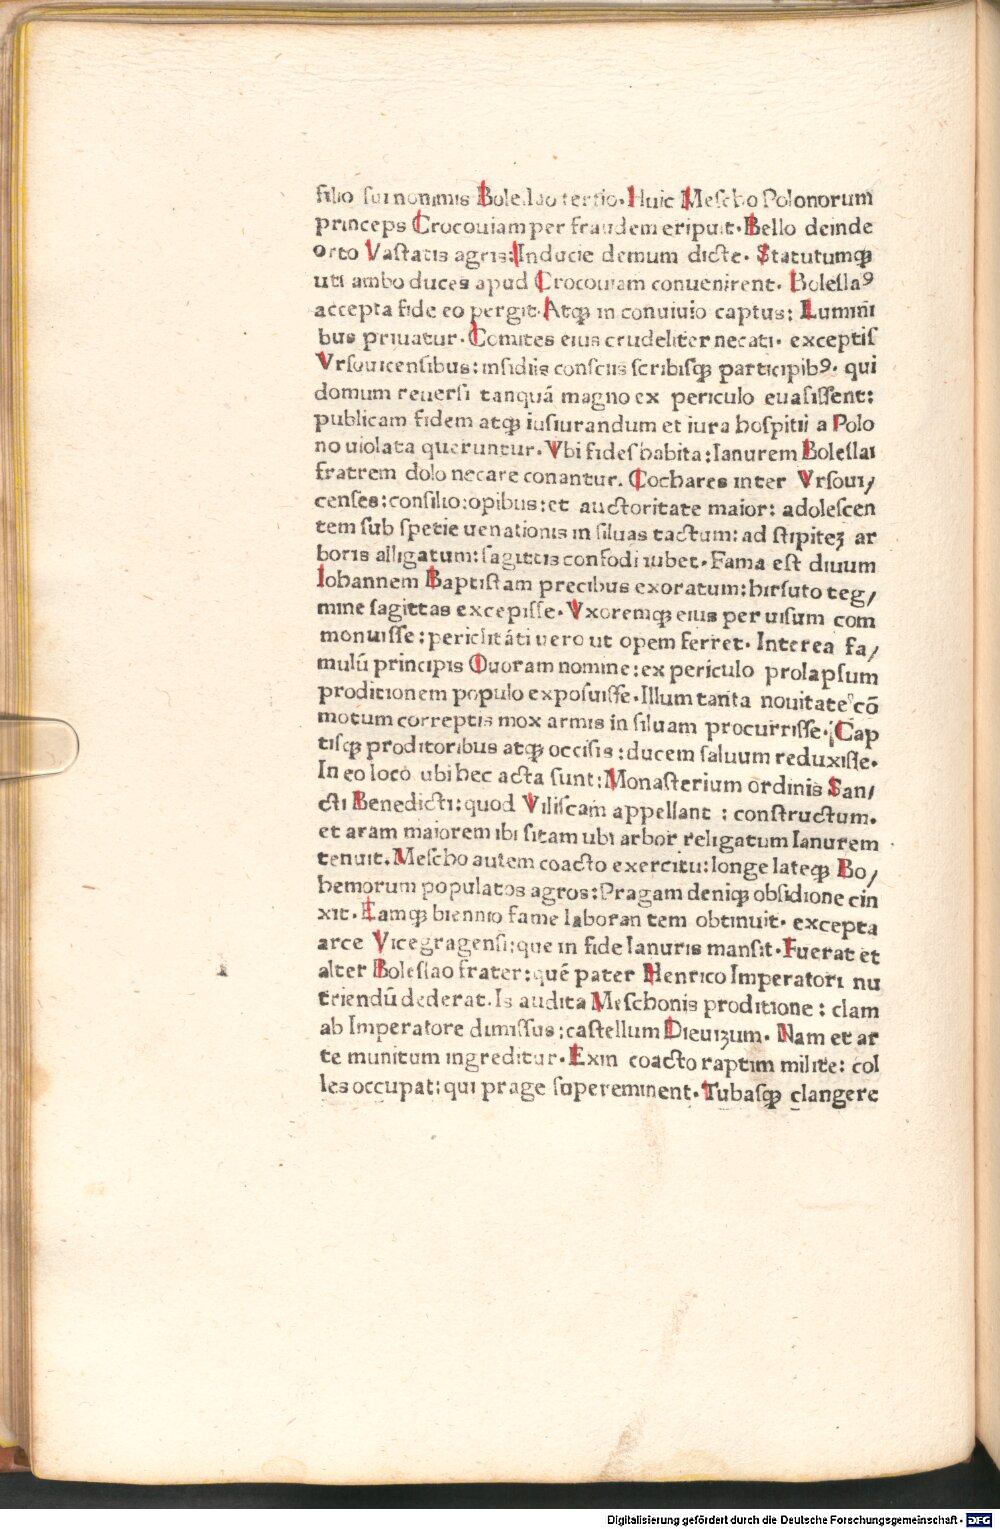 filio sui nominis Boleslao tertio. Huic Mescho Polonorum
princeps Crocouiam per fraudem eripuit. Bello deinde
orto Vastatis agris: Inducie demum dicte. Statutumqꝫ
uti ambo duces apud Crocouiam conuenirent. Boleslaꝰ
accepta fide eo pergit. Atqꝫ in conuiuio captus: Lumini
bus priuatur. Comites eius crudeliter necati. exceptis
Vrsouicensibus: insidiis consciis scribisqꝫ participibꝰ. qui
domum reuersi tanquā magno ex periculo euasissent:
publicam fidem atqꝫ iusiurandum et iura hospitii a Polo
no uiolata queruntur. Vbi fides habita: Ianurem Boleslai
fratrem dolo necare conantur. Cochares inter Vrsoui/
censes: consilio: opibus: et auctoritate maior: adolescen
tem sub spetie uenationis in siluas tactum: ad stipiteꝫ ar
boris alligatum: sagittis confodi iubet. Fama est diuum
Iohannem Baptistam precibus exoratum: hirsuto teg/
mine sagittas excepisse. Vxoremqꝫ eius per uisum com
monuisse: periclitāti uero ut opem ferret. Interea fa/
mulū principis Quoram nomine: ex periculo prolapsum
proditionem populo exposuisse. Illum tanta nouitate cō
motum correptis mox armis in siluam procurrisse. Cap
tisqꝫ proditoribus atqꝫ occisis: ducem saluum reduxisse.
In eo loco ubi hec acta sunt: Monasterium ordinis San/
cti Benedicti: quod Viliscam appellant: constructum.
et aram maiorem ibi sitam ubi arbor religatum Ianurem
tenuit. Mescho autem coacto exercitu: longe lateqꝫ Bo/
hemorum populatos agros: Pragam deniqꝫ obsidione cin
xit. Eamqꝫ biennio fame laboran tem obtinuit. excepta
arce Vicegragensi: que in fide Ianuris mansit. Fuerat et
alter Boleslao frater: quē pater Henrico Imperatori nu
triendū dederat. Is audita Meschonis proditione: clam
ab Imperatore dimissus: castellum Dieuizum. Nam et ar
te munitum ingreditur. Exin coacto raptim milite: col
les occupat: qui prage supereminent. Tubasqꝫ clangere
Digitalisierung gefördert durch die Deutsche Forschungsgemeinschaft - DFG